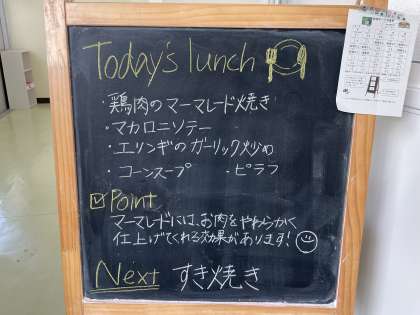 Today's lunch
・鶏肉のマーマレード焼き
・マカロニソテー
・エリンギのガーリック炒め
・コーンスープ ・ピラフ
☑Point
マーマレードには、お肉をやわらかく
仕上げてくれる効果があります!
Next すき焼き